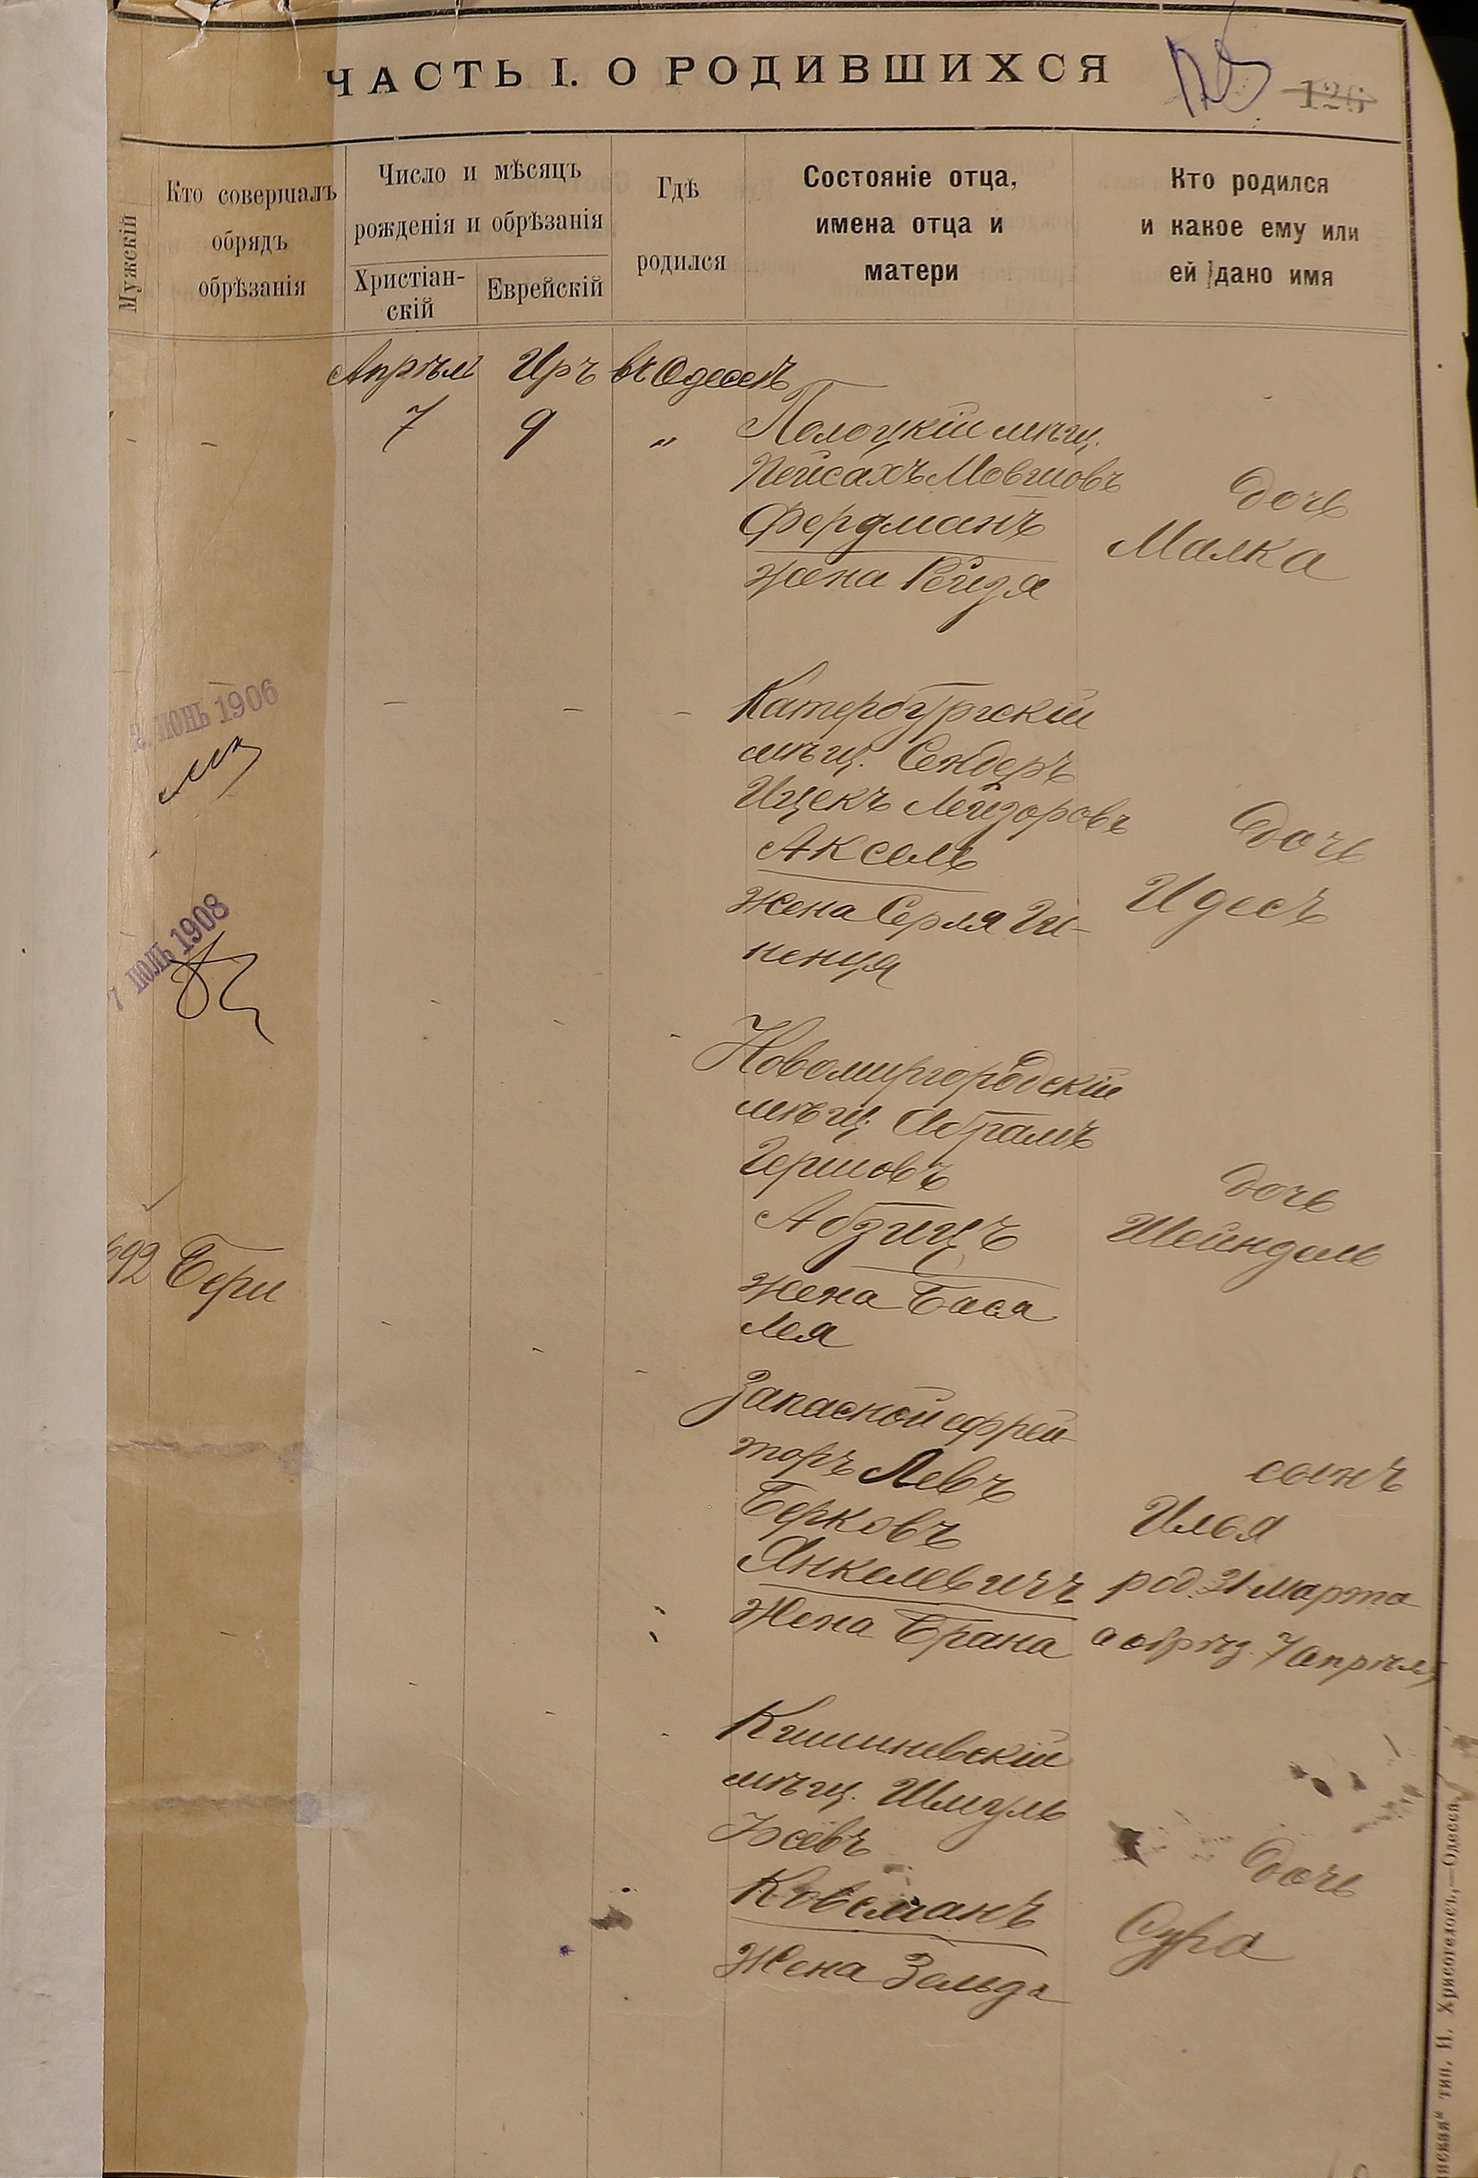 ЧАСТЬ I. О РОДИВШИХСЯ
126
Мужскій
Кто совершалъ
обрядъ
обрѣзанія
Число и мѣсяцъ
рожденія и обрѣзанія
Христіан-
скій
Еврейскій
Гдѣ
родился
Состояніе отца,
имена отца и
матери
Кто родился
и какое ему или
ей дано имя
Апрѣль Иръ въ Одессѣ
- - 7 9 "
Полоцкій мѣщ.
Пейсахъ Мовшовъ
Фердманъ
жена Рейзя
дочь
Малка
2 ІЮНЬ 1906
Катербургскій
мѣщ. Сендеръ
Ицекъ Лейзоровъ
Аксель
жена Серля Ги-
ненця
дочь
Идесъ
7 ІЮЛЬ 1908
Новомиргородскій
мѣщ. Абрамъ
Гершовъ
Абзицъ
жена Бася
Лея
дочь
Шейндель
692 Бери
Запасной ефрей-
торъ Левъ
Берковъ
Янкелевичъ
жена Брана
сынъ
Илья
род. 31 Марта
а обрѣз. 7 апрѣля
Кишиневскій
мѣщ. Шмуль
Іосевъ
Ковсманъ
жена Зельда
дочь
Сура
тип. И. Хрисогелосъ,—Одесса